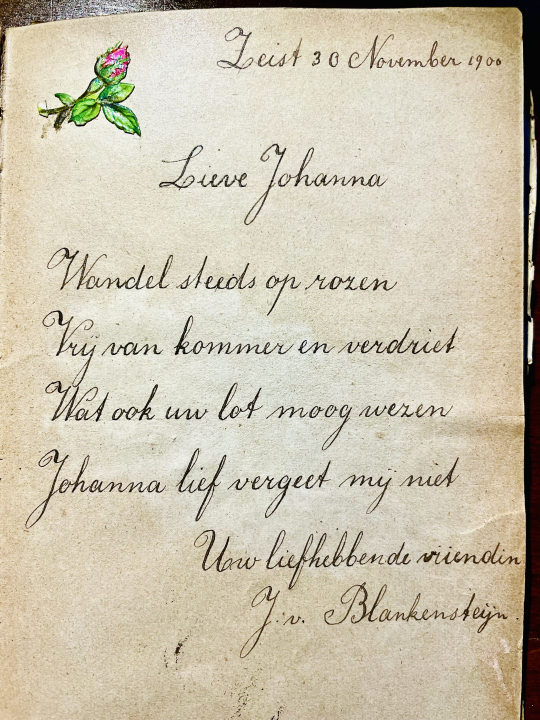 Zeist 30 November 1900
Lieve Johanna
Wandel steeds op rozen
Vrij van kommer en verdriet
Wat ook uw lot moog wezen
Johanna lief vergeet mij niet
Uw liefhebbende vriendin
J. v. Blankensteijn.